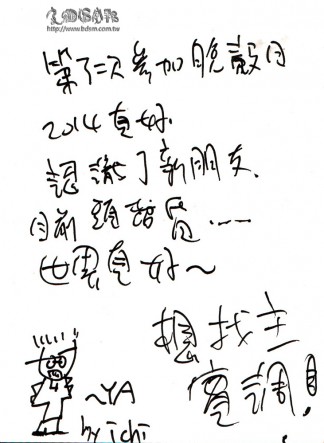 http://www.bdsm.com.tw
第了二次參加脫殼日
2014真好
認識了新朋友.
目前
也很真好~
想找主
調!
~YA
by ichi